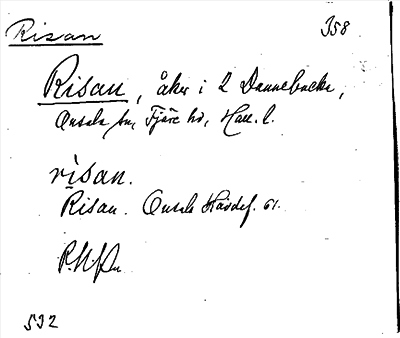 Risan 358
Risan, åker i 2 Dannebacka,
Onsala sn, Fjäre hd, Hall. l.
risan.
Risan. Onsala Hävdef. 61.
532